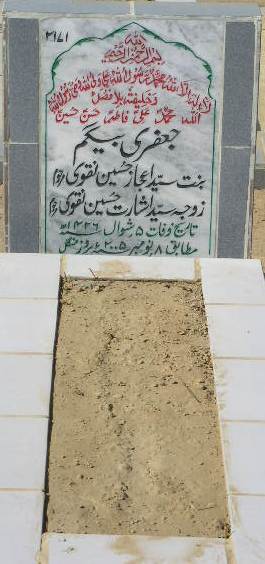 ۲۱۷۱
اللہ
بسم اللہ الرحمن الرحیم
لا الہ الا اللہ محمد رسول اللہ علی ولی اللہ وصی رسول اللہ
وخلیفتہ بلا فصل
اللہ محمد علی فاطمہ حسن حسین
جعفری بیگم
بنت سید اعجاز حسین نقوی مرحوم
زوجہ سید بشارت حسین نقوی مرحوم
تاریخ وفات ۵ شوال ۱۴۲۶ھ
مطابق ۸ نومبر ۲۰۰۵ء بروز منگل